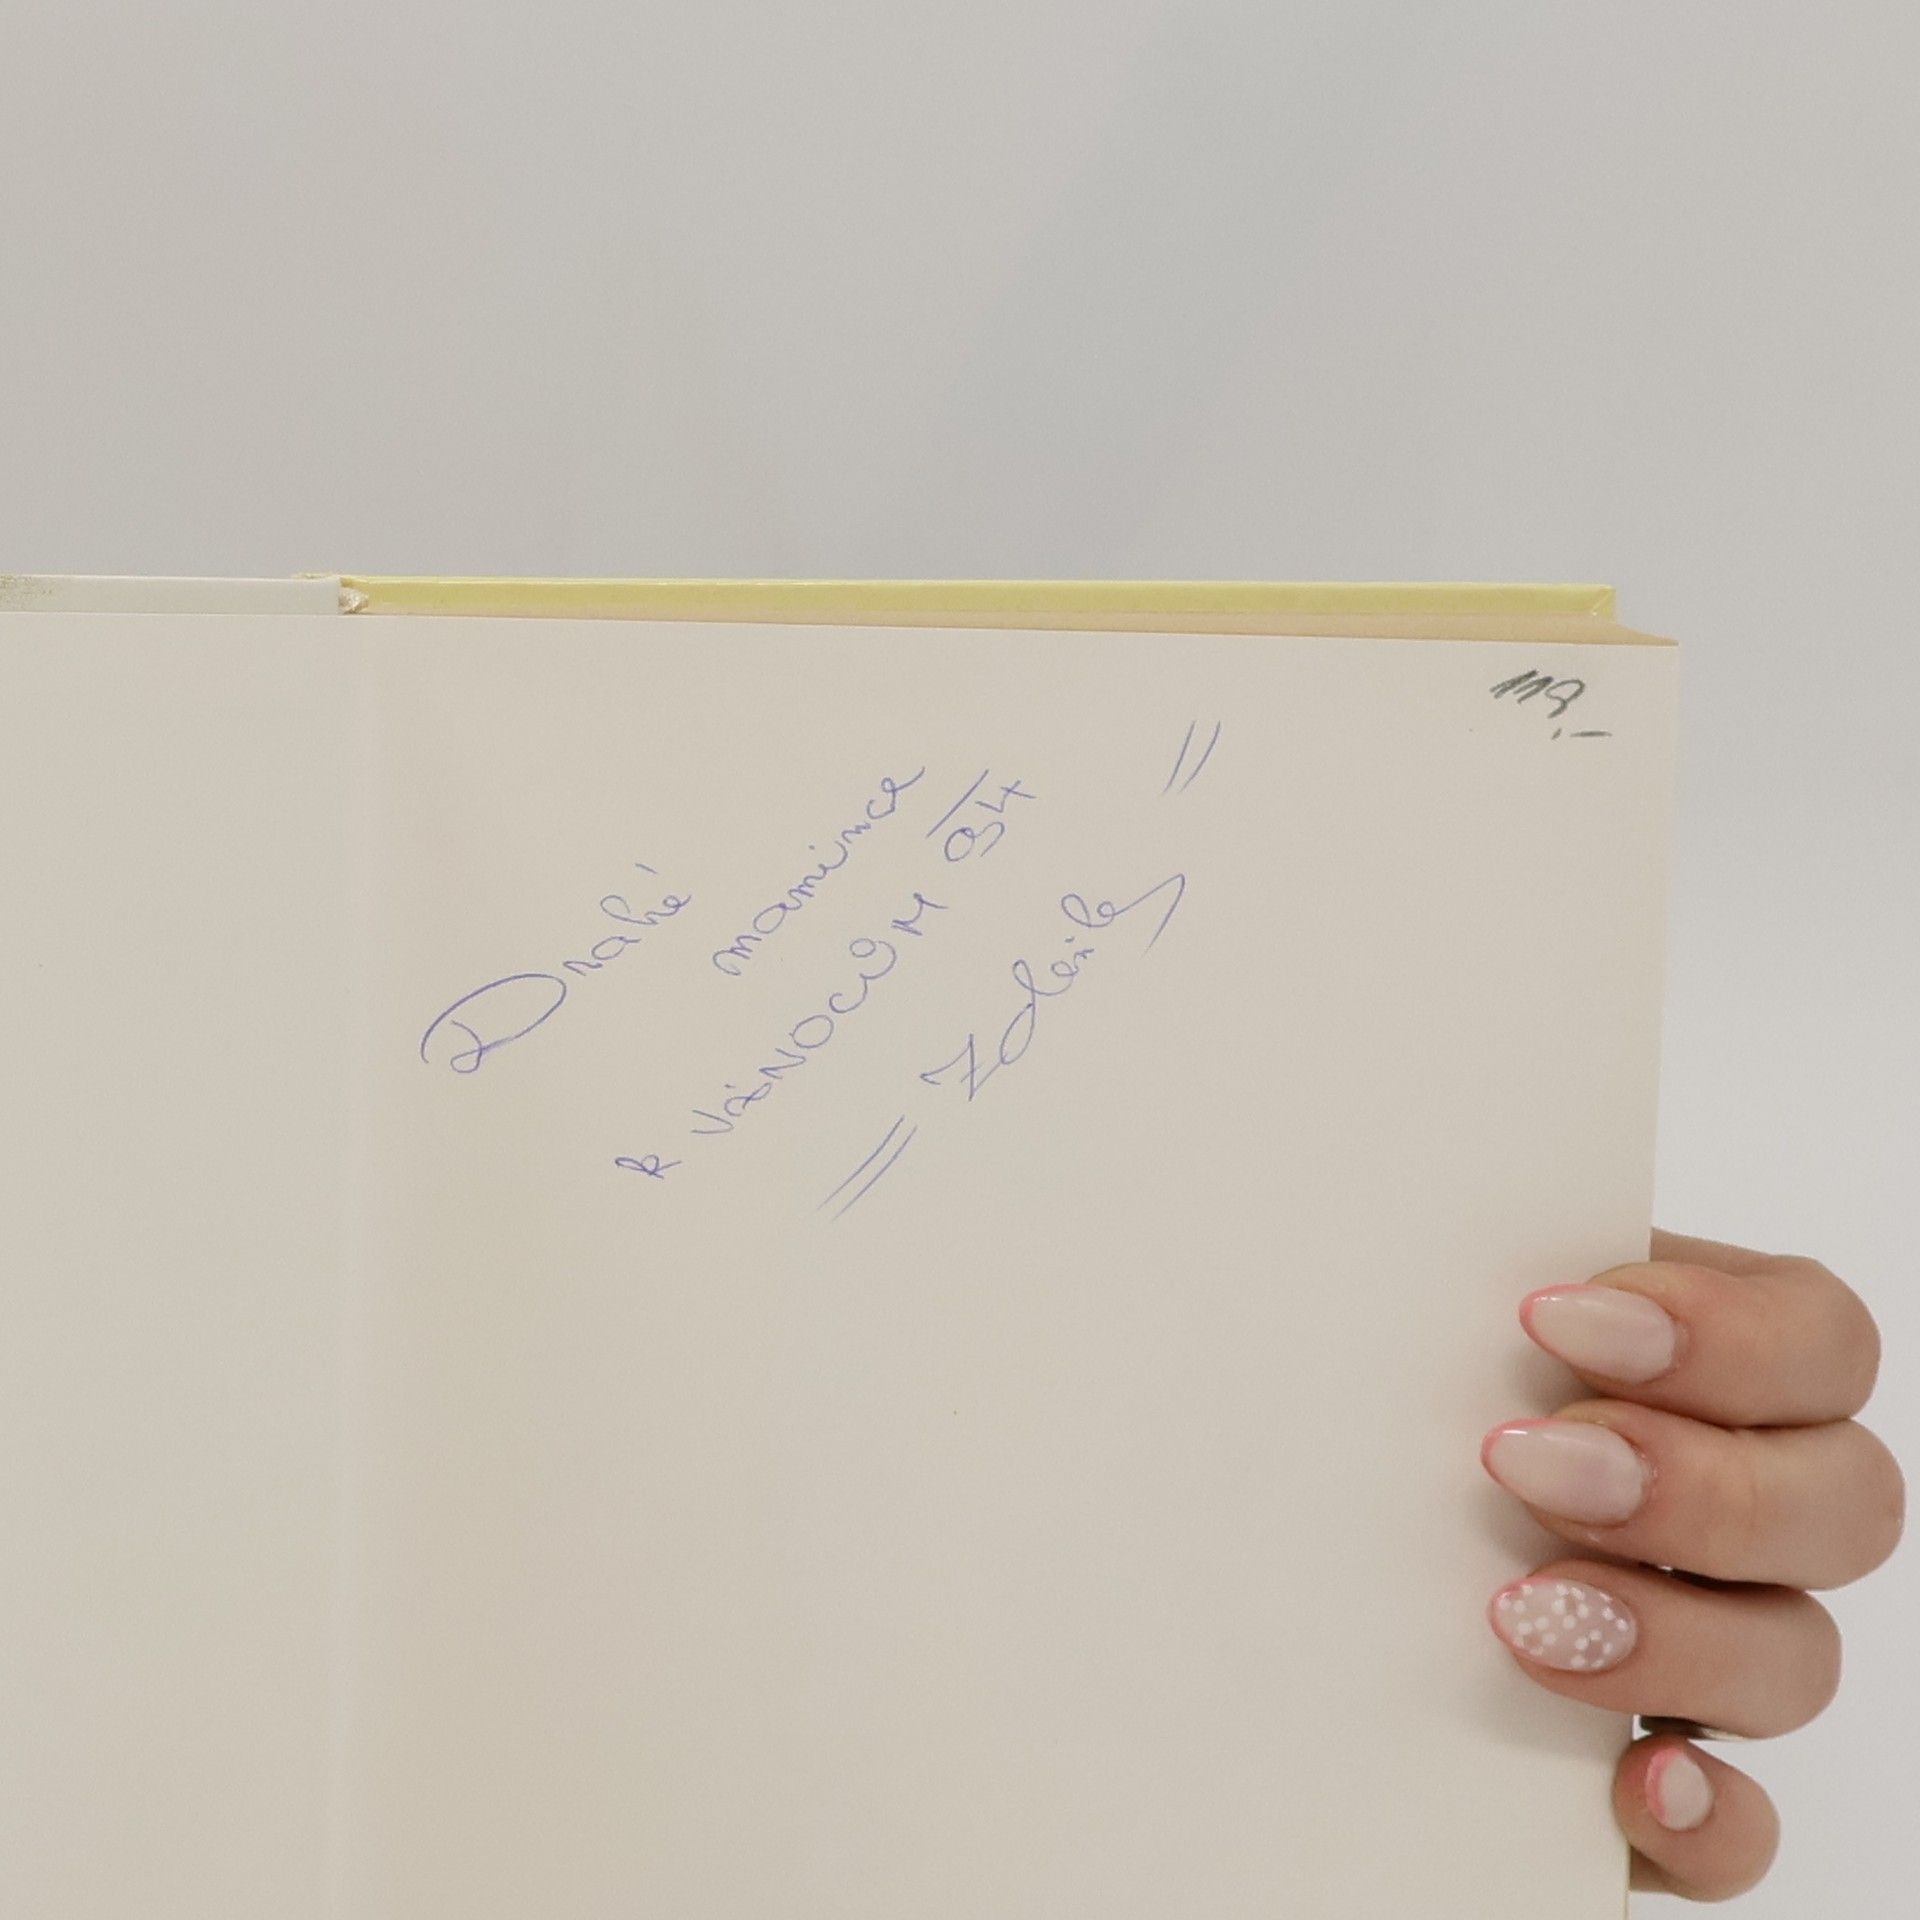 118,-
Drahé
mamince
k VÁNOCŮM 94
Zdeněk